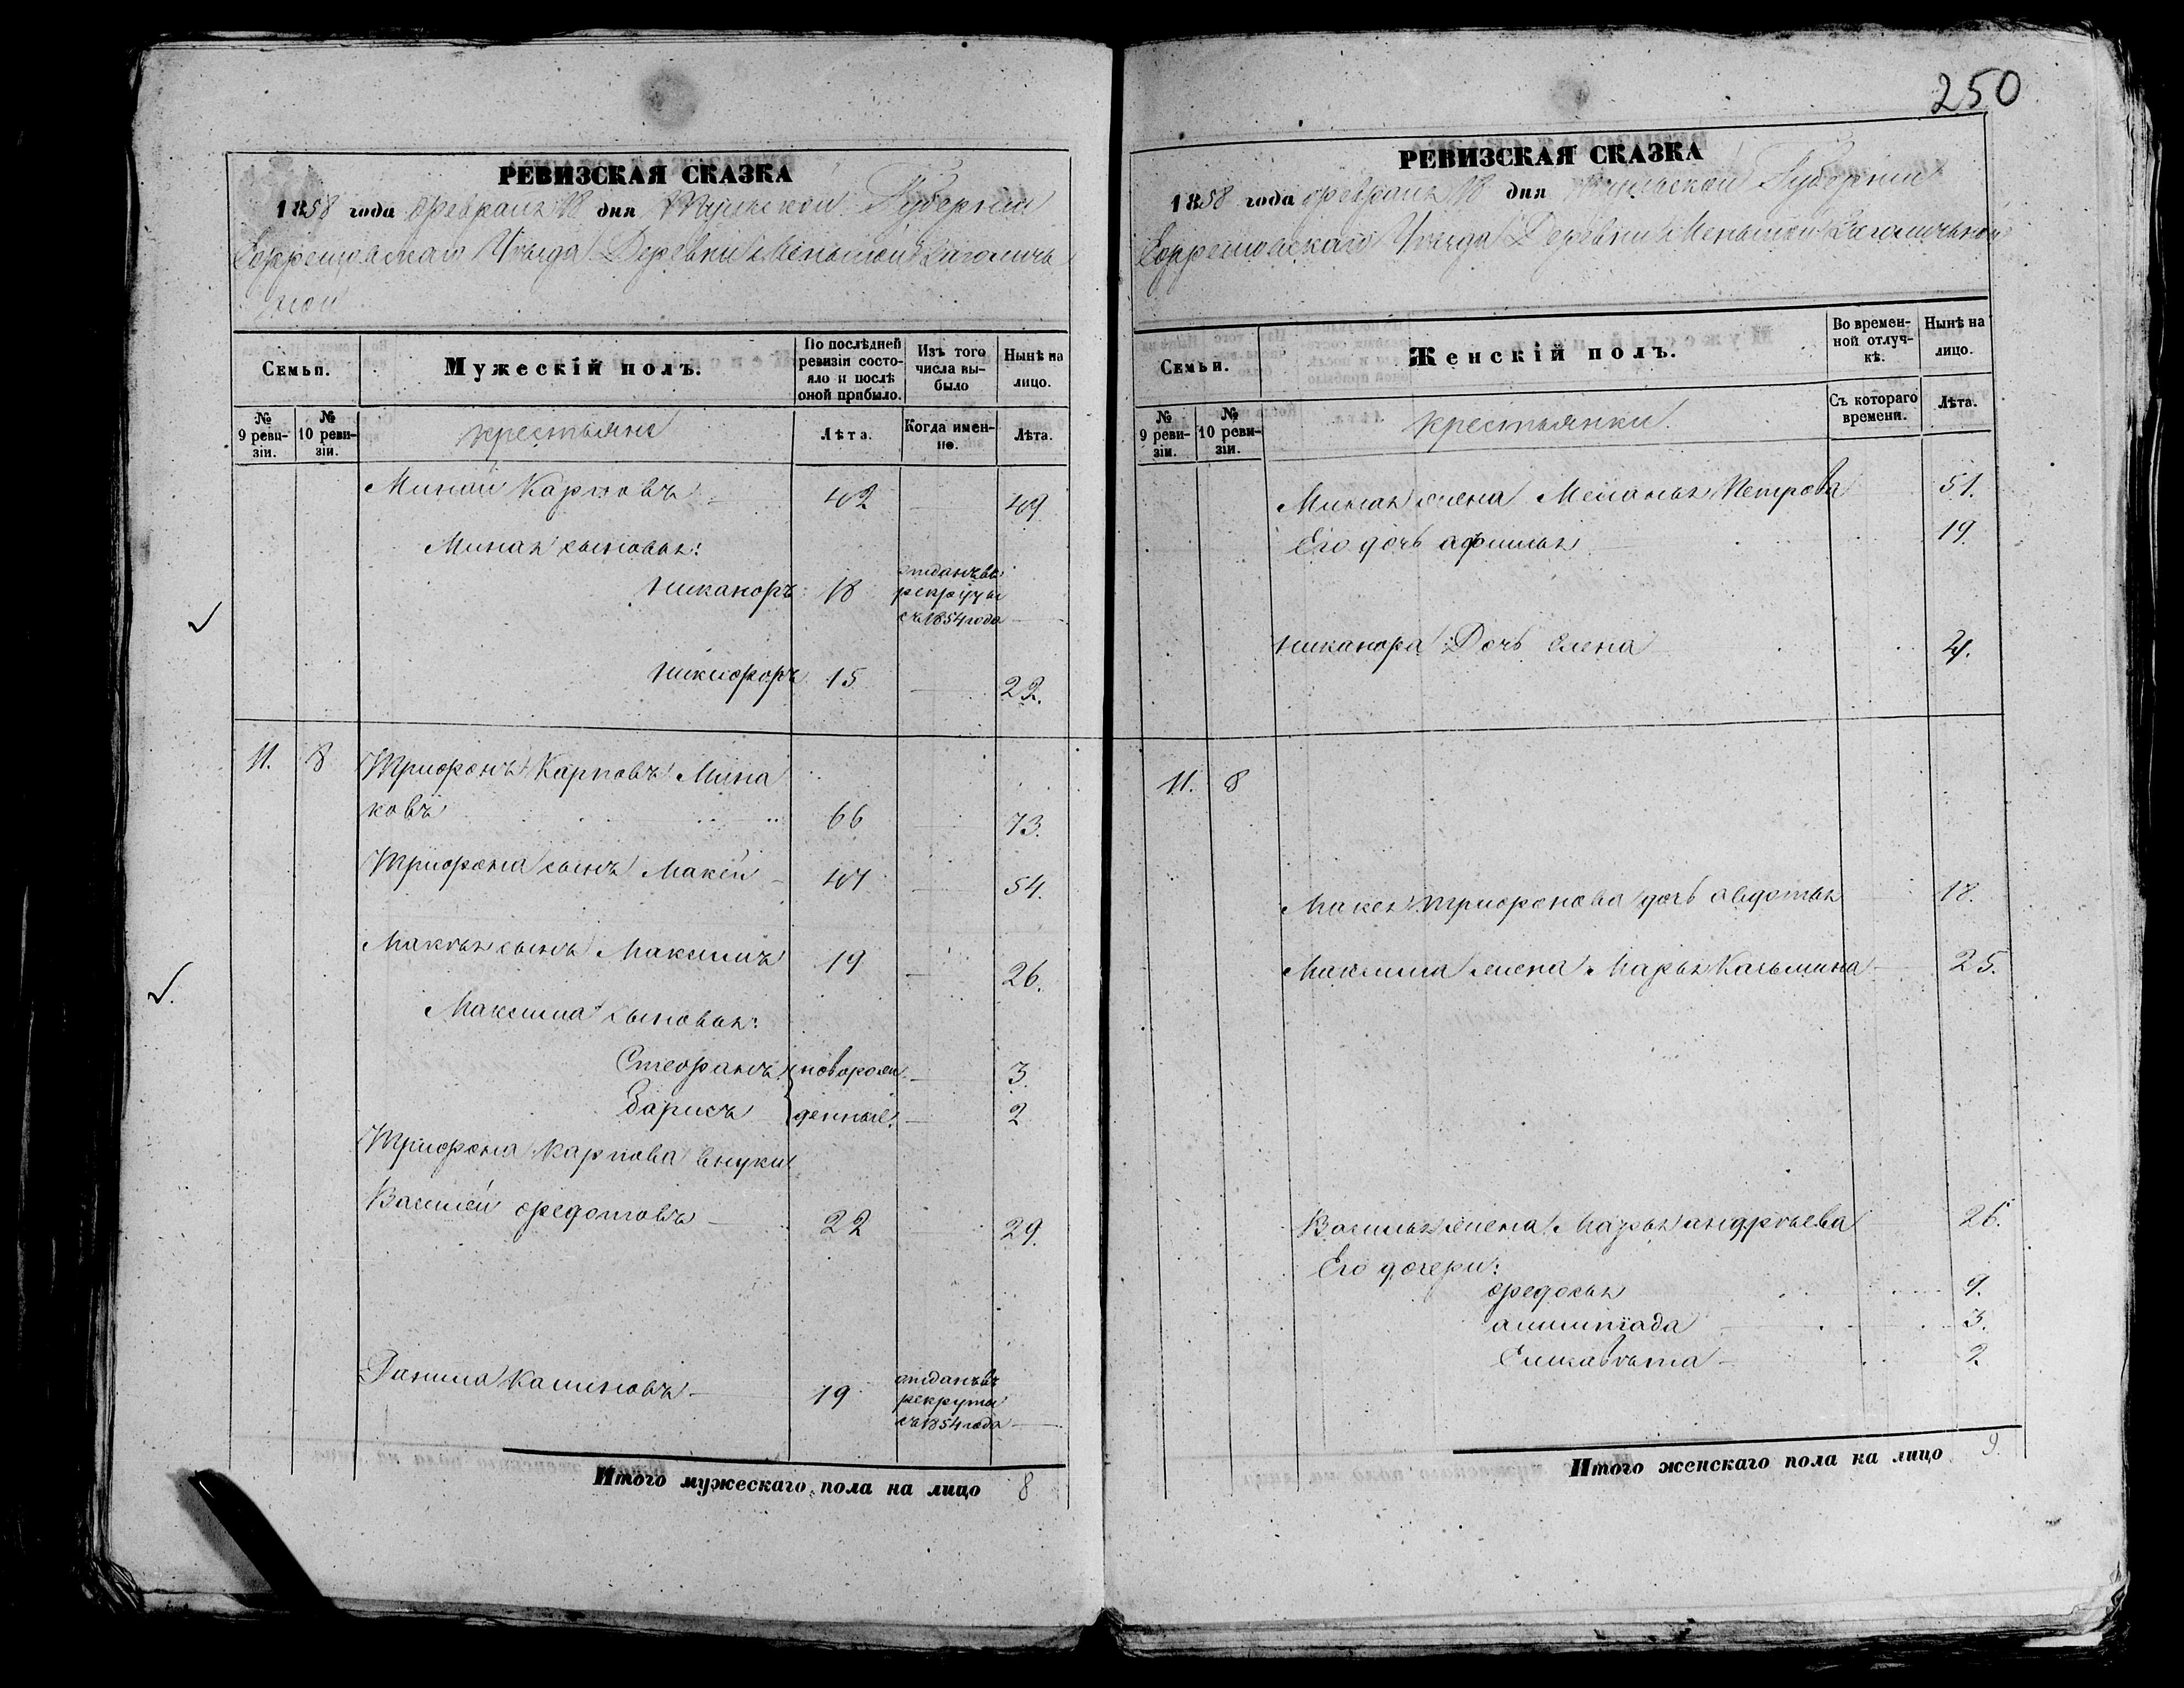 250
РЕВИЗСКАЯ СКАЗКА
1858 года февраля 18 дня Тульской Губернии
Ефремовскаго Уѣзда Деревни Меньшой
Семьи.
Мужескій полъ.
По послѣдней ревизіи состояло и послѣ оной прибыло.
Изъ того числа выбыло
Нынѣ на лицо.
№ 9 ревизіи.
№ 10 ревизіи.
крестьяне
Лѣта.
Когда именно.
Лѣта.
Минай Карповъ 42 — 49
Миная сыновья:
Никаноръ 18 отданъ въ рекруты съ 1854 года —
Никифоръ 15 — 22.
11. 8 Трифонъ Карповъ Мина
ковъ 66 — 73.
Трифона сынъ Макей 47 — 54.
Макѣя сынъ Максимъ 19 — 26.
Максима сыновья:
Стефанъ } новорож — 3.
Барисъ } денные. — 2
Трифона Карпова внуки
Василей Федотовъ 22 — 29.
Данила 19 отданъ въ рекруты съ 1854 года —
Итого мужескаго пола на лицо 8
РЕВИЗСКАЯ СКАЗКА
1858 года февраля 18 дня Тульской Губернии
Ефремовскаго Уѣзда Деревни Меньшой
Семьи.
Женскій полъ.
Во временной отлучкѣ.
Нынѣ на лицо.
№ 9 ревизіи.
№ 10 ревизіи.
крестьянки.
Съ котораго времени.
Лѣта.
Миная жена Меланья Петрова 51.
Его дочь афимья 19.
Никанора Дочь Елена 4.
11. 8
Макея Трифонова дочь авдотья 18.
Максима жена Марья Казьмина 25.
Василья жена Марья андрѣева 26.
Его дочери:
федосья 9.
алимпіада 3.
Елисавѣта 2.
Итого женскаго пола на лицо 9.